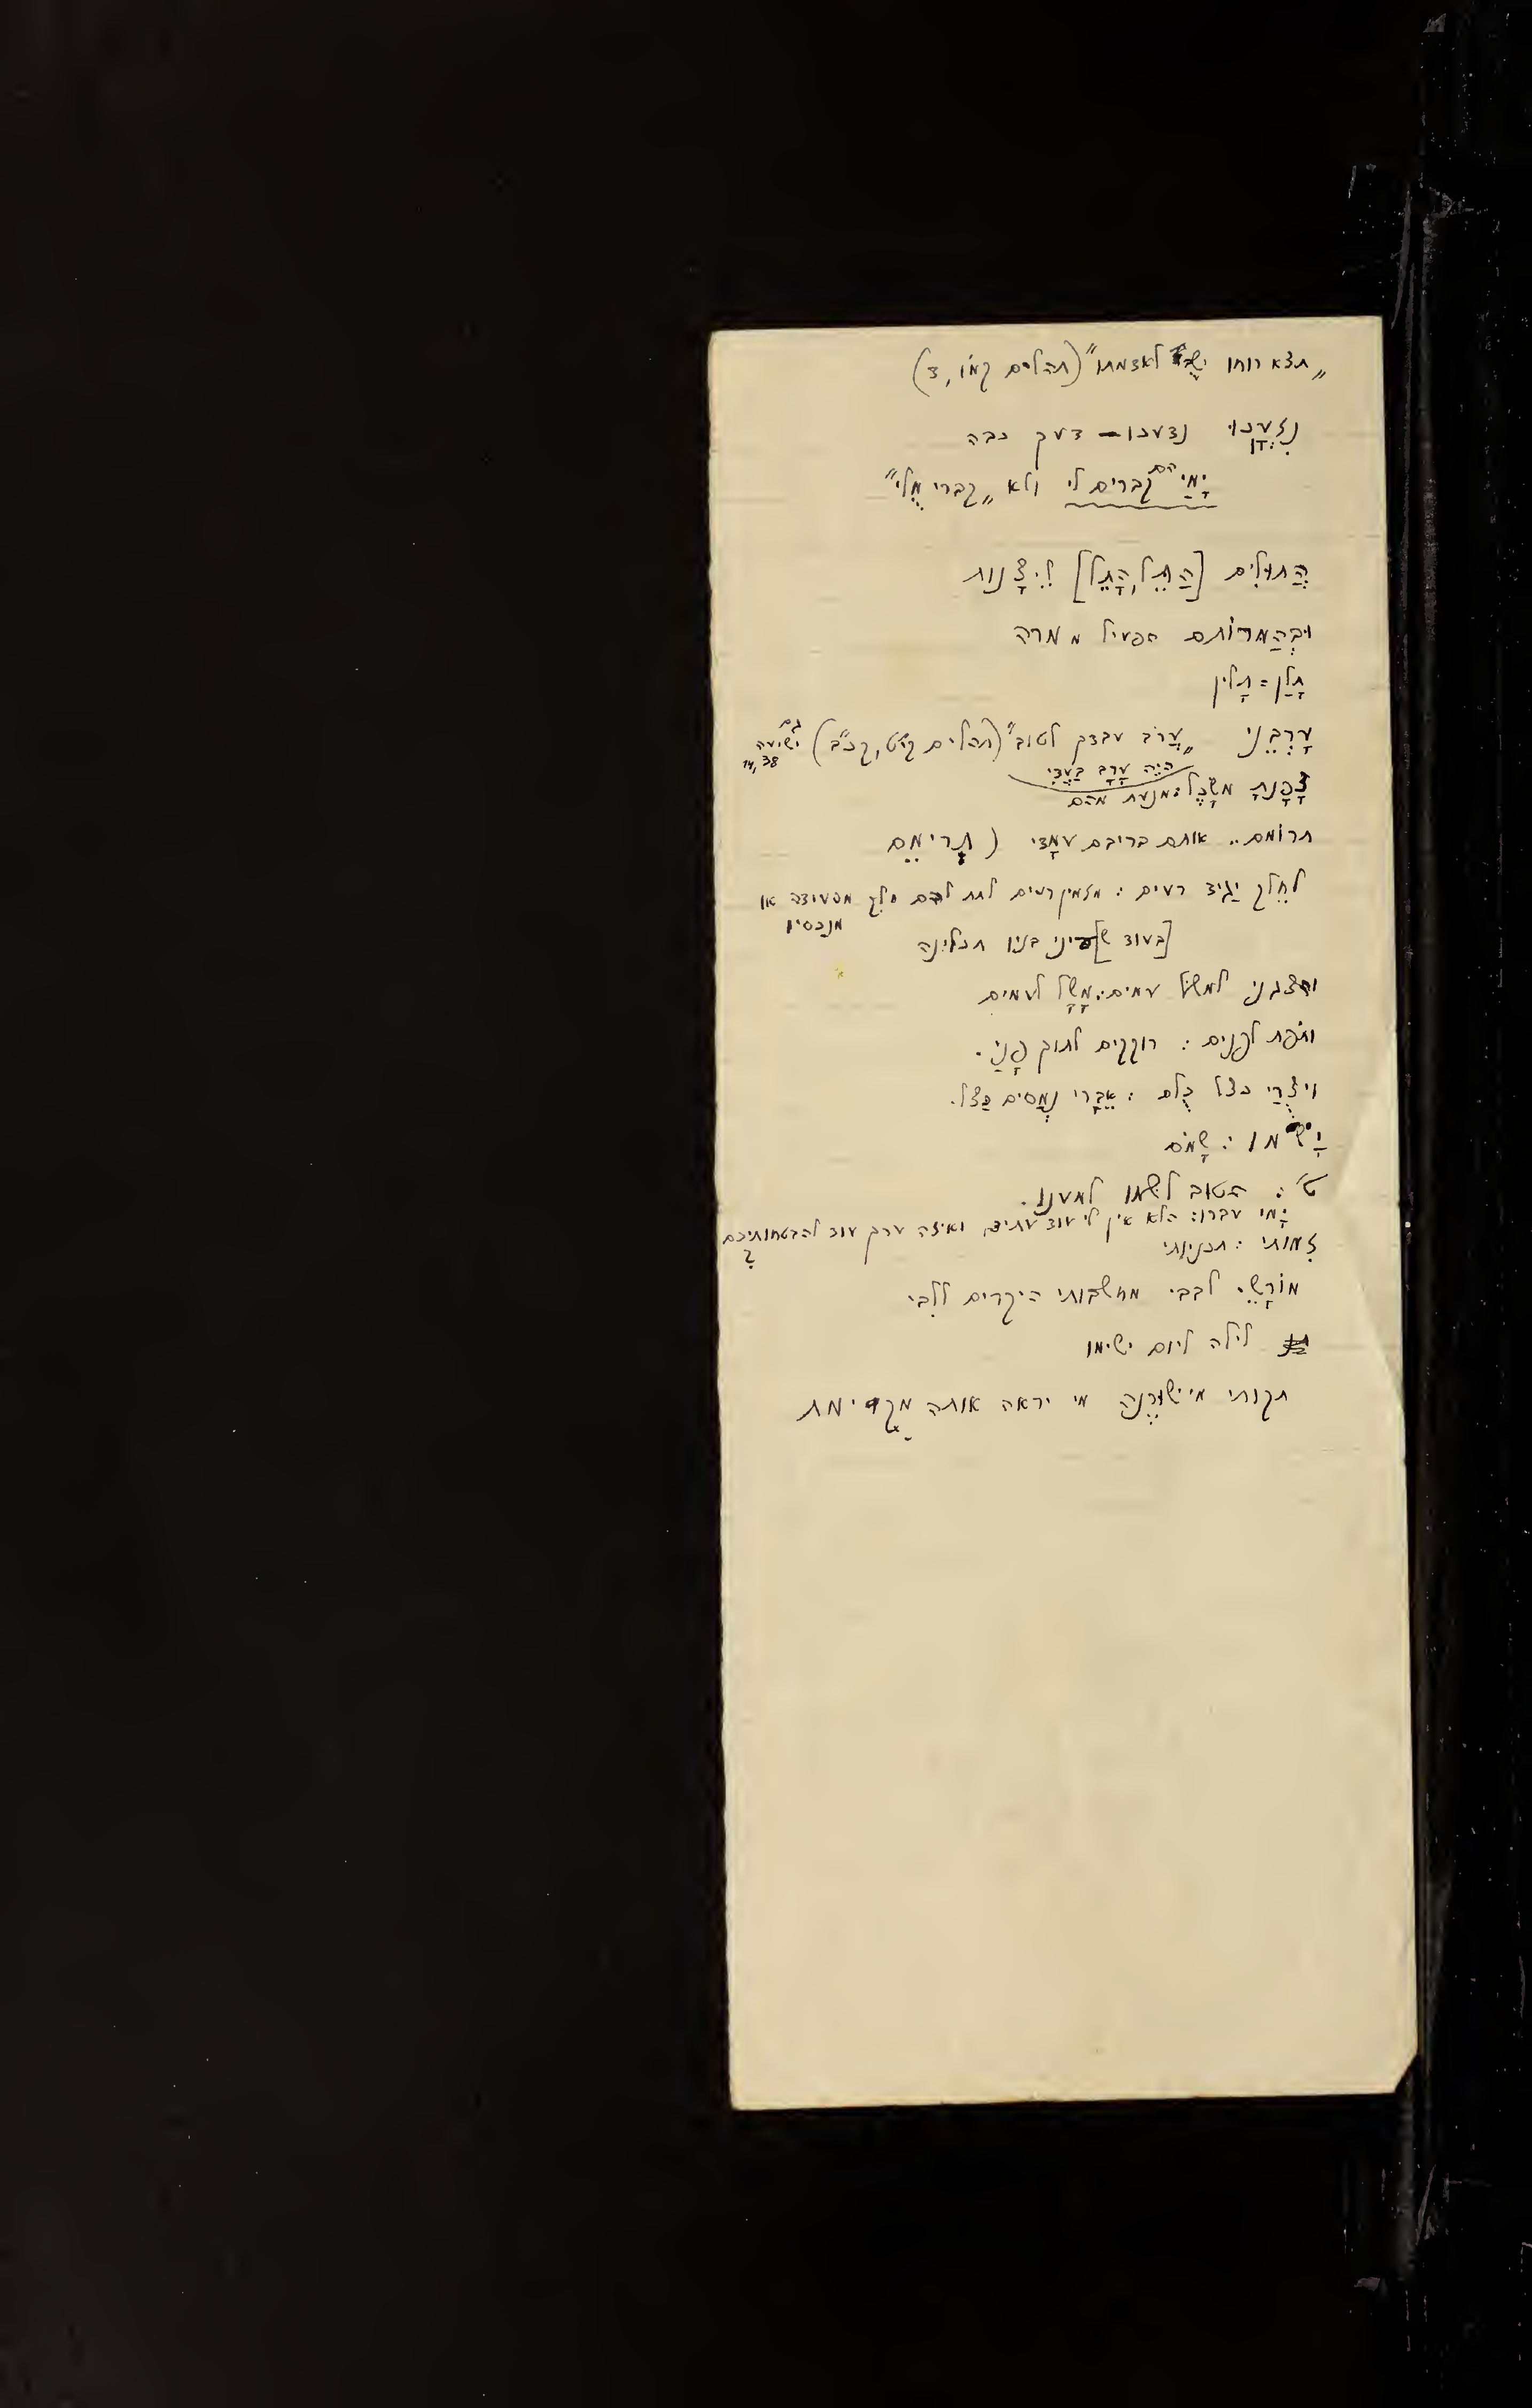 „תצא רוחו ישֻב לאדמתו" (תהלים קמו, ד)
נִזְעָכוּ נדעכו – דעך כבה
יָמַי הם קברים לי ולא „קברי מֻלי"
הֲתוּלִים [הַתֵל, הָתֵל] לֵיצָנוּת
וּבְהַמְרוֹתָם הפעיל מ מרה
תָלַן = תָלין
עָרְבֵנִי „עֲרֹב עבדך לטוב" (תהלים קיט, קכב) גם ישעיה 38, 14
היה עָרֵב בַּעֲדִי
צָפַנְתָ מִשָׂכֶל: מנעת מהם
תרוֹמם.. אותם בריבם עִמָדי ( תְרימֵם
לְחֵלֶק יַגִיד רעים: מזמין רעים לתת להם חלק מסעודה או
מנכסיו
[בעוד ש]עיני בניו תכלינה
והצגני למשֹׁל עמים: מָשָל לעמים
ותֹפת לפנים: רוקקים לתוך פָנַי.
ויצֻרַי כצל כֻלם: אֲבָרַי נְמַסים כַּצל.
יָשֹׁמוּ: שָמֹם
ט': הטוב לשמו למענו.
יָמַי עברו: הלא אין לי עוד עתיד, ואיזה ערך עוד להבטחותיכם
?
זִמותי: תכניותי
מוֹרָשֵׁי לבבי מחשבותי היקרים ללבי
לילה ליום ישימו
תקותי מי ישוּרֶנָה מי יראה אותה מְקֻדימת